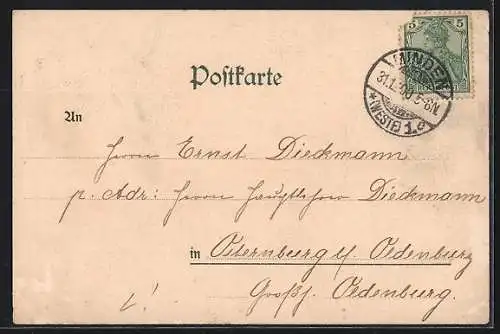 5 5
MINDEN
31.1.00 5-6N
*(WESTF) 1.c
Postkarte
An
Herrn Ernst Dieckmann
p. Adr: Herrn Hauptlehrer Dieckmann
in Osternburg b/ Oldenburg
Großh. Oldenburg.